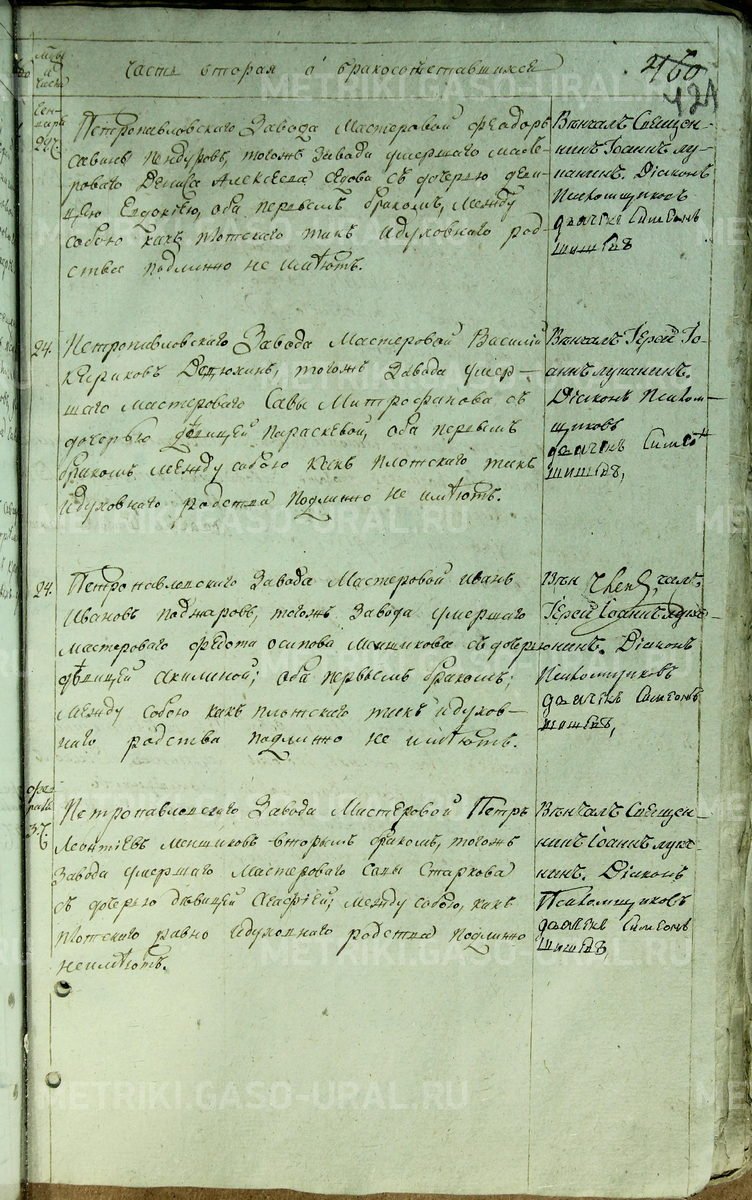 мцы
и
числа
Часть вторая о бракосочетавшихся
460
421
Ген-
варь
Петропавловскаго Завода Мастеровой Феодоръ
Савинъ тогожъ Завода умершаго масте-
роваго Дениса Алексеева съ дочерью деви-
цею Евдокіею, оба первымъ бракомъ, между
собою какъ плотскаго такъ идуховнаго род-
ства подлинно не имѣютъ.
Вѣнчалъ Священ-
никъ Іоаннъ лу-
канинъ. Діаконъ
Псаломщиковъ
дьячекъ Симеонъ
шишевъ
24.
Петропавловскаго Завода Мастеровой Василій
тогожъ Завода умер-
шаго Мастероваго Савы Митрофанова съ
дочерью дѣвицей Параскевой, оба первымъ
бракомъ между собою какъ плотскаго такъ
идуховнаго родства подлинно не имѣютъ.
Вѣнчалъ Іерей Іо-
аннъ луканинъ.
Діаконъ Псалом-
щиковъ
дьячекъ Симео
шишевъ,
24.
Петропавловскаго Завода Мастеровой Иванъ
Ивановъ тогожъ Завода умершаго
мастероваго Федота осипова Меншикова съ дочерью
дѣвицей Акилиной; оба первымъ бракомъ;
между собою какъ плотскаго такъ идухов-
наго родства подлинно не имѣютъ.
Вѣн член, чалъ
Іерей Іоаннъ лука-
нинъ. Діаконъ
Псаломщиковъ
дьячекъ Симеонъ
шишевъ,
фев-
раля
Петропавловскаго Завода Мастеровой Петръ
Леонтіевъ Меншиковъ вторымъ бракомъ, тогожъ
Завода умершаго Мастероваго Савы Старкова
съ дочерью дѣвицей Агафіей; между собою, какъ
плотскаго равно идуховнаго родства подлинно
неимѣютъ.
Вѣнчалъ Священ-
никъ Іоаннъ лука-
нинъ. Діаконъ
Псаломщиковъ
дьячекъ Симеонъ
шишевъ,
METRIKI.GASO-URAL.RU